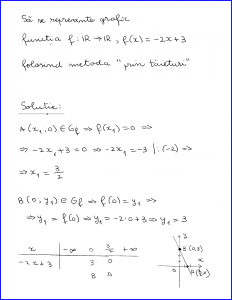 Să se reprezinte grafic
funcția f: ℝ → ℝ, f(x) = -2x + 3
folosind metoda "prin tăieturi"
Soluție:
A(x₁, 0) ∈ Gf ⇒ f(x₁) = 0 ⇒
⇒ -2x₁ + 3 = 0 ⇒ -2x₁ = -3 | : (-2) ⇒
⇒ x₁ = 3/2
B(0; y₁) ∈ Gf ⇒ f(0) = y₁ ⇒
⇒ y₁ = f(0) ⇒ y₁ = -2·0 + 3 ⇒ y₁ = 3
x | -∞ 0 3/2 +∞
-2x + 3 | 3 0
B A
3
B(0,3)
x
0